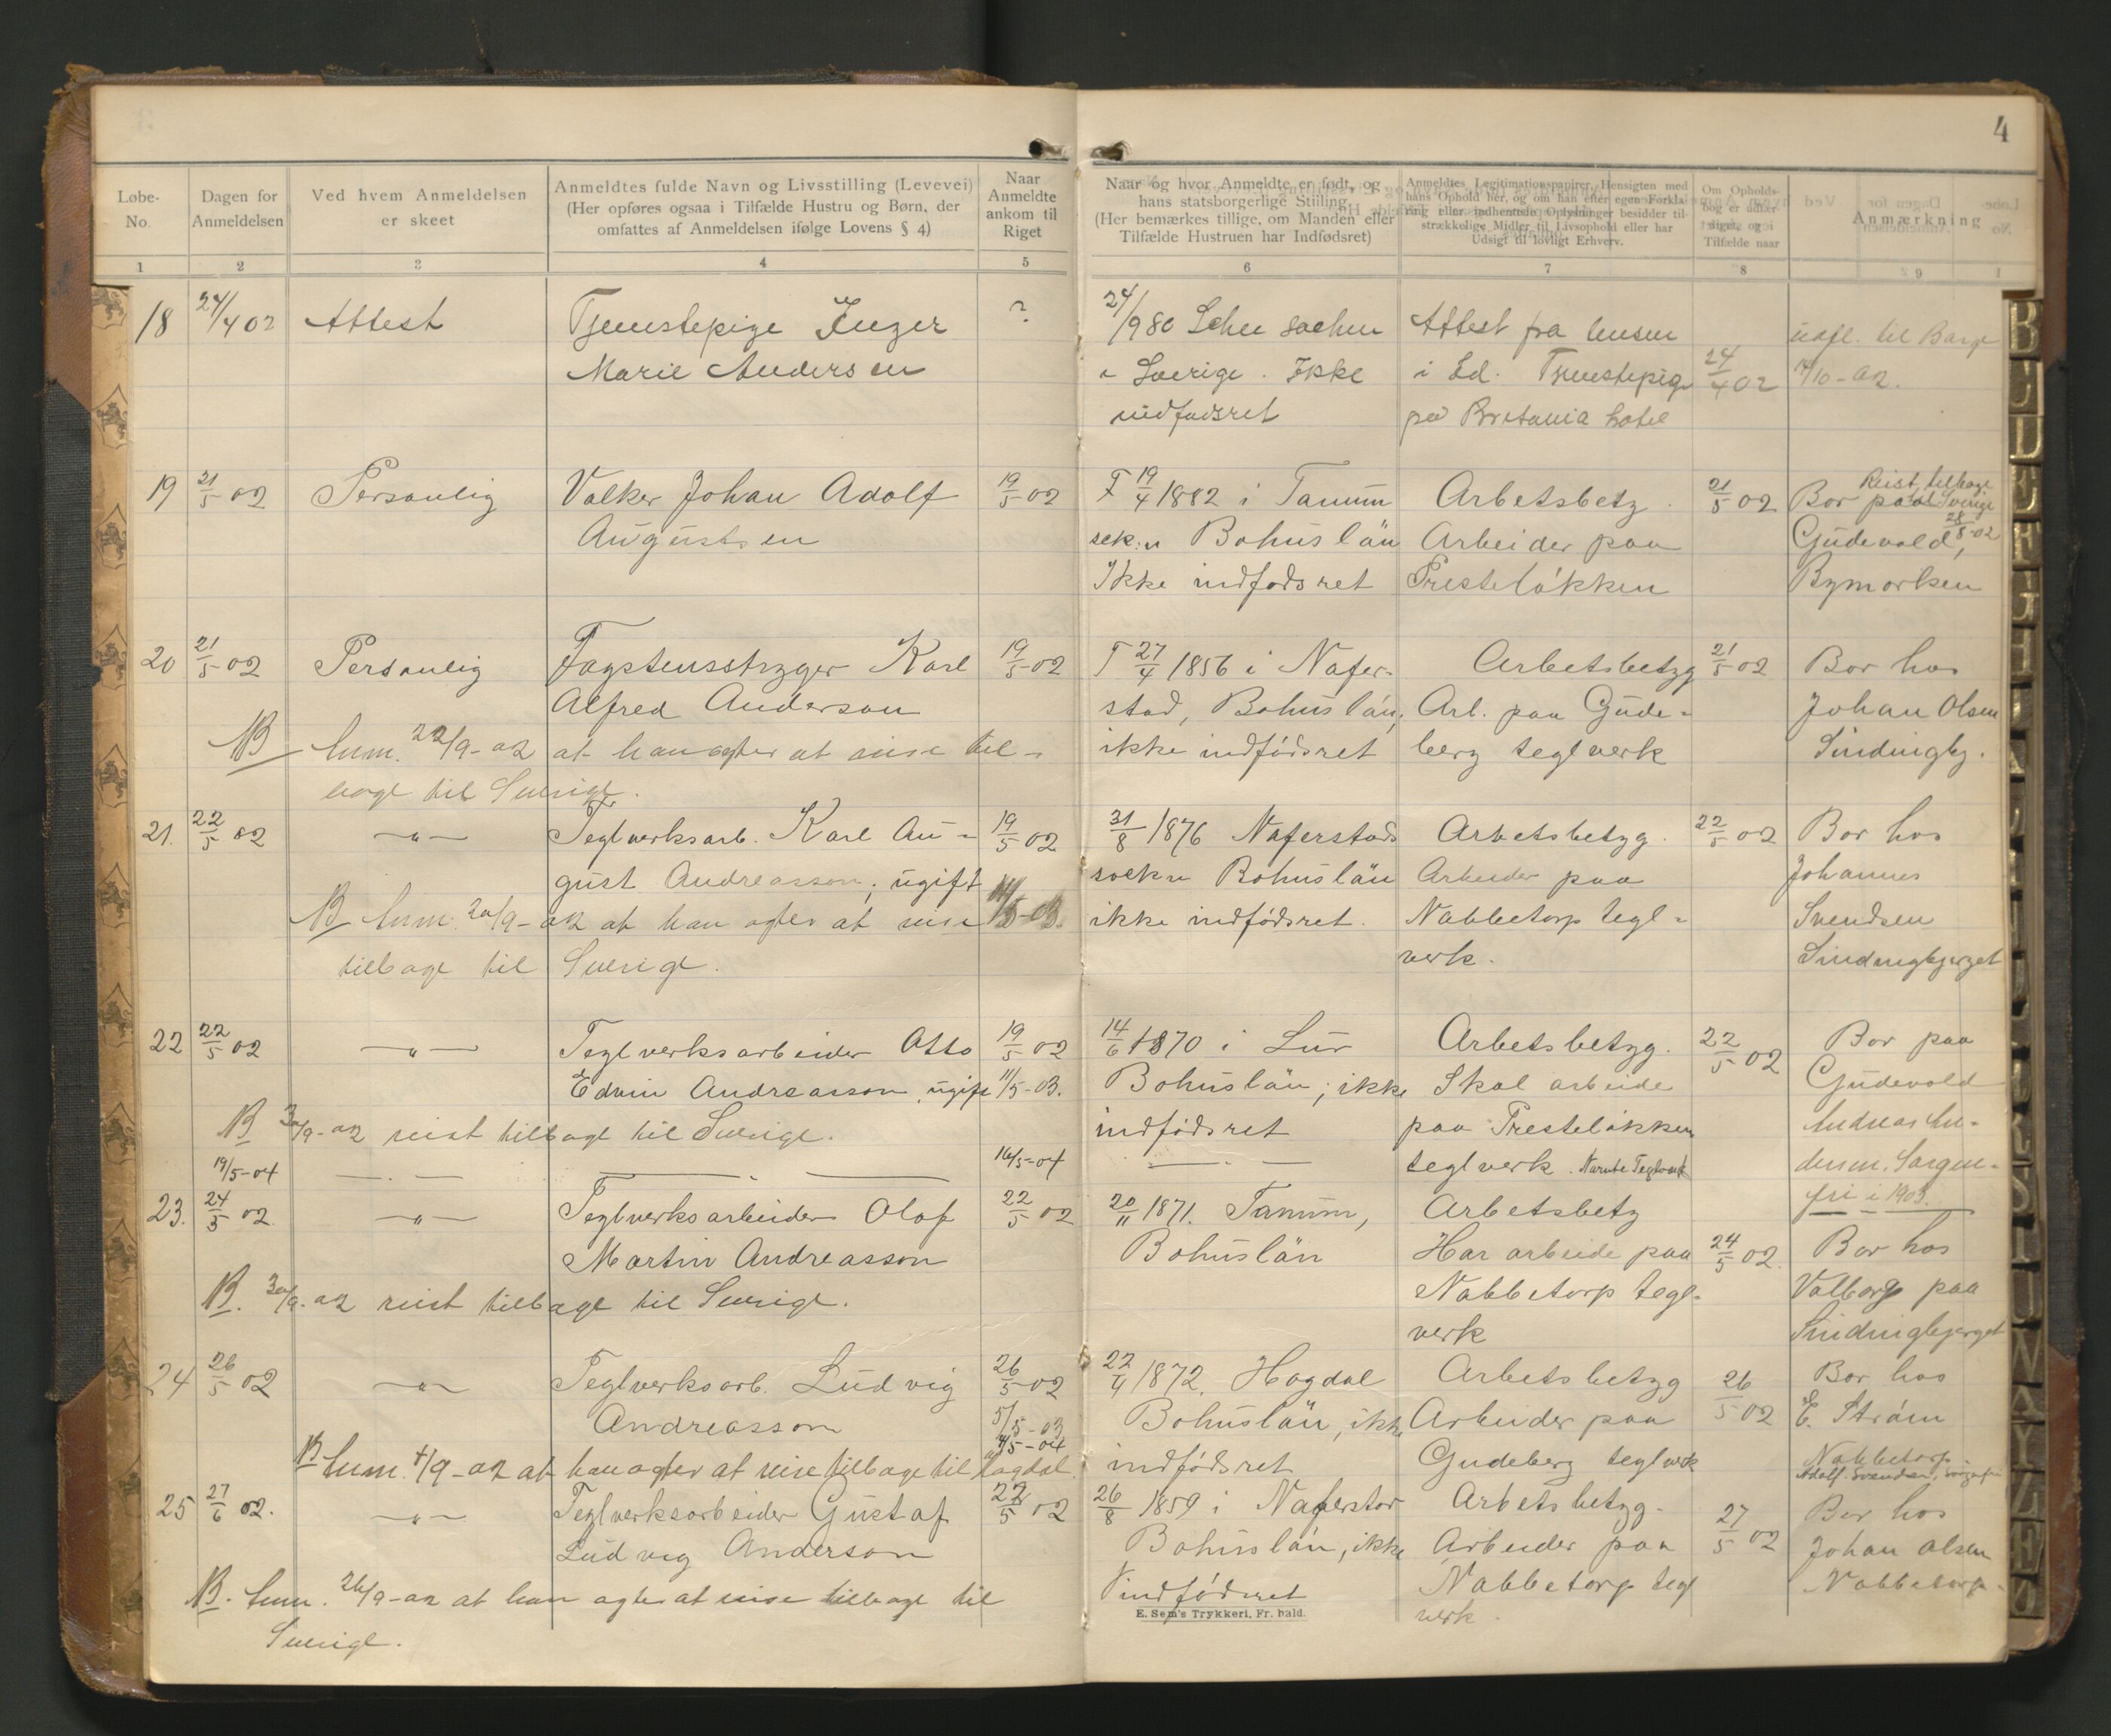 4
Løbe-
No.
Dagen for
Anmeldelsen
Ved hvem Anmeldelsen
er skeet
Anmeldtes fulde Navn og Livsstilling (Levevei)
(Her opføres ogsaa i Tilfælde Hustru og Børn, der
omfattes af Anmeldelsen ifølge Lovens § 4)
Naar
Anmeldte
ankom til
Riget
Naar og hvor Anmeldte er født, og
hans statsborgerlige Stilling
(Her bemærkes tillige, om Manden eller
Tilfælde Hustruen har Indfødsret)
Anmeldtes Legitimationspapirer, Hensigten med
hans Ophold her, og om han efter egen Forkla-
ring eller indhentede Oplysninger besidder til-
strækkelige Midler til Livsophold eller har
Udsigt til lovligt Erhverv.
Om Opholds-
bog er udfær-
diget, og i
Tilfælde naar
Anmærkning
1 2 3 4 5 6 7 8 9
18 24/4 02 Attest
Tjenestepige Inger
Marie Andersen
?
24/9 80
i Sverige. Ikke
indfødsret
Attest fra
i Ed. Tjenestepige
på Britania hotel
24/4 02
udfl. til Barge
19 21/5 02 Personlig
Valker Johan Adolf
Augustsen
19/5 02
F 19/4 1882 i Tanum
sok:n Bohuslän
Ikke indfødsret
Arbetsbetz.
Arbeider paa
Presteløkken
21/5 02
Reist tilbage
til Sverige
28/8-02
Bor paa
Gudevold,
Bymarken
20 21/5 02 Personlig
Tagstensstryger Karl
Alfred Anderson
19/5 02
F 27/4 1856 i Nafer-
stad, Bohuslän,
ikke indfødsret
Arbetsbetzg
Arb. paa Gude-
berg teglverk
21/5 02
Bor hos
Johan Olsen
Sindingbg.
NB 22/9-02 at han agter at reise til-
bage til Sverige.
21. 22/5 02 —„—
Teglverksarb. Karl Au-
gust Andreasson, ugift
19/5 02
11/5-03.
31/8 1876 Naferstads
sockn Bohuslän
ikke indfødsret.
Arbetsbetyg.
Arbeider paa
Nabbetorp tegl-
verk.
22/5 02
Bor hos
Johannes
Svendsen
Sindingbjerget
NB 20/9-02 at han agter at reise
tilbage til Sverige.
22 22/5 02 —„—
Teglverksarbeider Otto
Edvin Andreasson, ugift
19/5 02
11/5-03.
14/6 1870 i Lur
Bohuslän; ikke
indfødsret
Arbetsbetyg.
Skal arbeide
paa Presteløkken
teglverk.
22/5 02
Bor paa
Gudevold
Andreas An-
dersen, Sorgen-
fri i 1903.
NB 30/9-02 reist tilbage til Sverige.
19/5-04
16/5-04
23. 24/5 02 —„—
Teglverksarbeider Olaf
Martin Andreasson
22/5 02
20/11 1871. Tanum,
Bohuslän
Arbetsbetz
Har arbeide paa
Nabbetorp tegl-
verk
24/5 02.
Bor hos
Valborg paa
Sindingbjerget
NB. 30/9-02 reist tilbage til Sverige.
24 26/5 02 —„—
Teglverksarb. Ludvig
Andreasson
26/5 02
5/5-03
Hogdal
Bohuslän, ikke
indfødsret
Arbetsbetyg
Arbeider paa
Gudeberg teglverk
26/5 02
Bor hos
E. Strøm
Nabbetorp
Adolf Svendsen, Sorgenfri
NB 4/9-02 at han agter at reise tilbage til Hogdal.
25 27/6 02. —„—
Teglverksarbeider Gustaf
Ludvig Anderson
22/5 02
26/8 1859 i
Bohuslän, ikke
indfødsret
Arbetsbetyg.
Arbeider paa
Nabbetorp tegl
verk.
27/5 02
Bor hos
Johan Olsen
Nabbetorp.
NB. 26/9-02 at han agter at reise tilbage til
Sverige.
E. Sem's Trykkeri, Fr. hald.